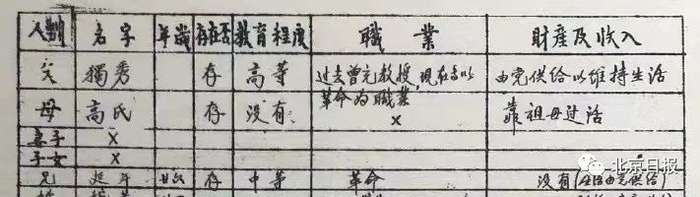 人别 名字 年歲 存在否 教育程度 職業 財產及收入
父 獨秀 存 高等 过去曾充教授,现在高以 由党供给以维持生活
革命为職業
母 高氏 存 没有 × 靠祖母过活
妻子 ×
子女 ×
兄 延年 存 中等 革命 没有(生活由党供给)
北京日报